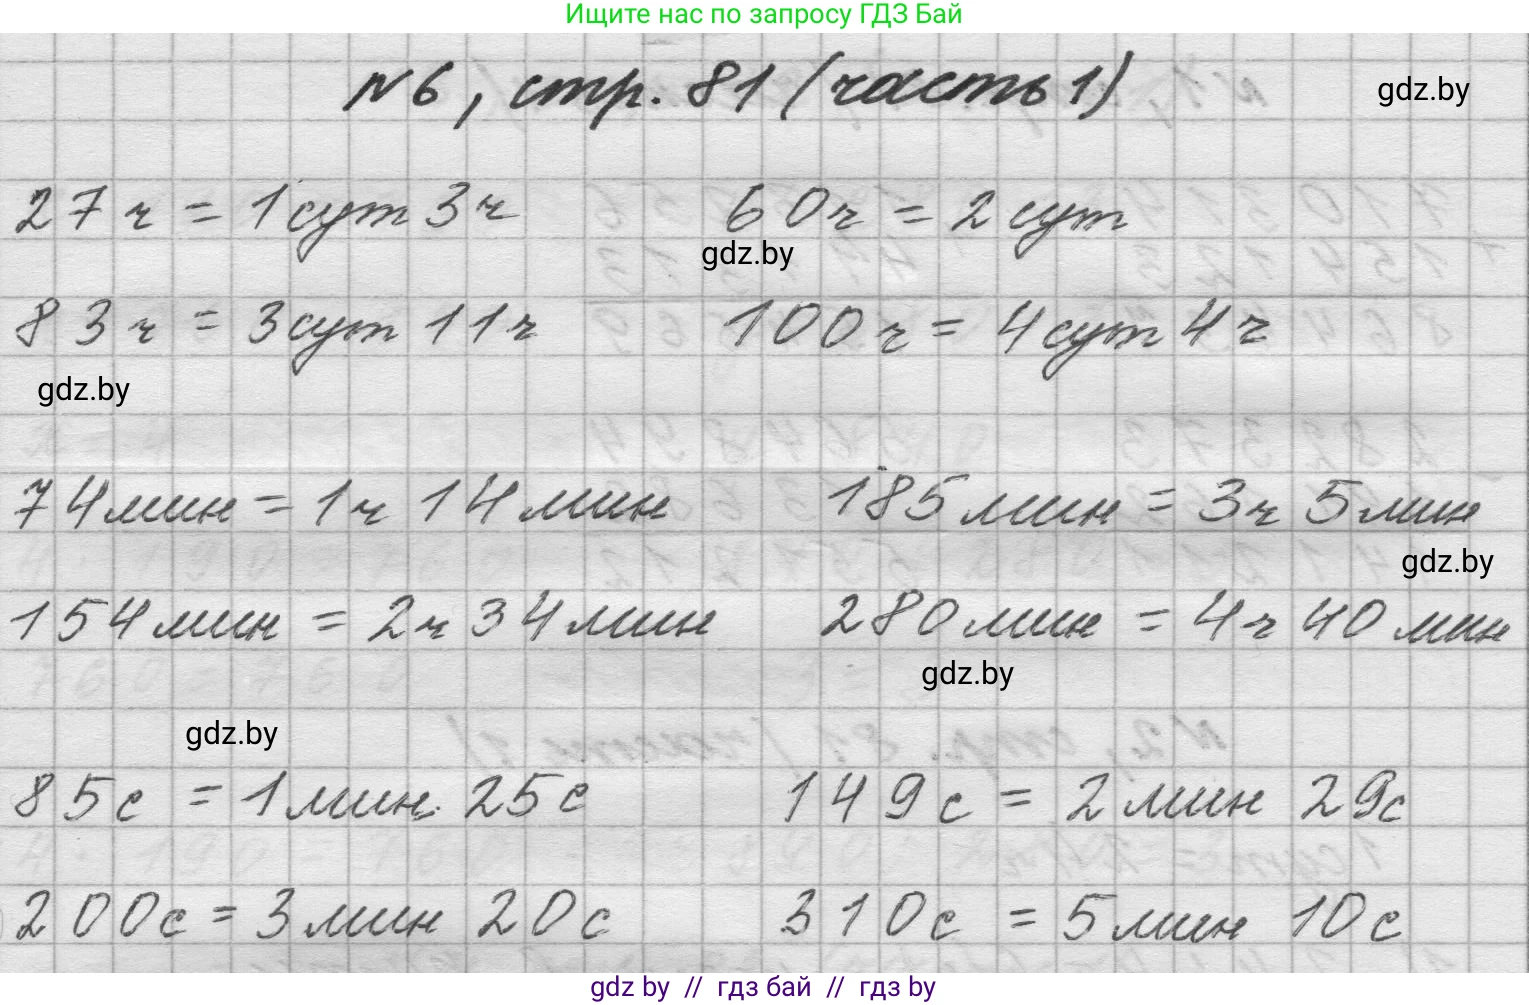 Ищите нас по запросу ГДЗ Бай
№6, стр. 81 (часть 1)
gdz.by
27 ч = 1 сут 3 ч 60 ч = 2 сут
gdz.by
83 ч = 3 сут 11 ч 100 ч = 4 сут 4 ч
gdz.by
74 мин = 1 ч 14 мин 185 мин = 3 ч 5 мин
gdz.by
154 мин = 2 ч 34 мин 280 мин = 4 ч 40 мин
gdz.by
gdz.by
85 с = 1 мин 25 с 149 с = 2 мин 29 с
200 с = 3 мин 20 с 310 с = 5 мин 10 с
gdz by // гдз бай // гдз by